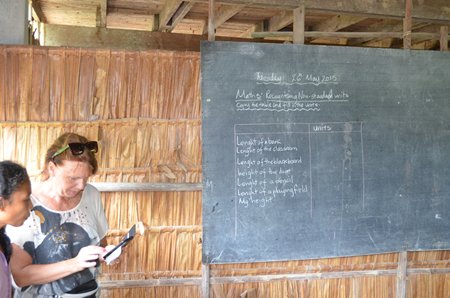 Tuesday 26 May 2015
Maths: Recognising Non-standard units
Copy the table and fill in the units
Units
Lenght of a bank
Lenght of the classroom
Lenght of the blackboard
height of the door
Lenght of a pencil
Lenght of a playing field
My height